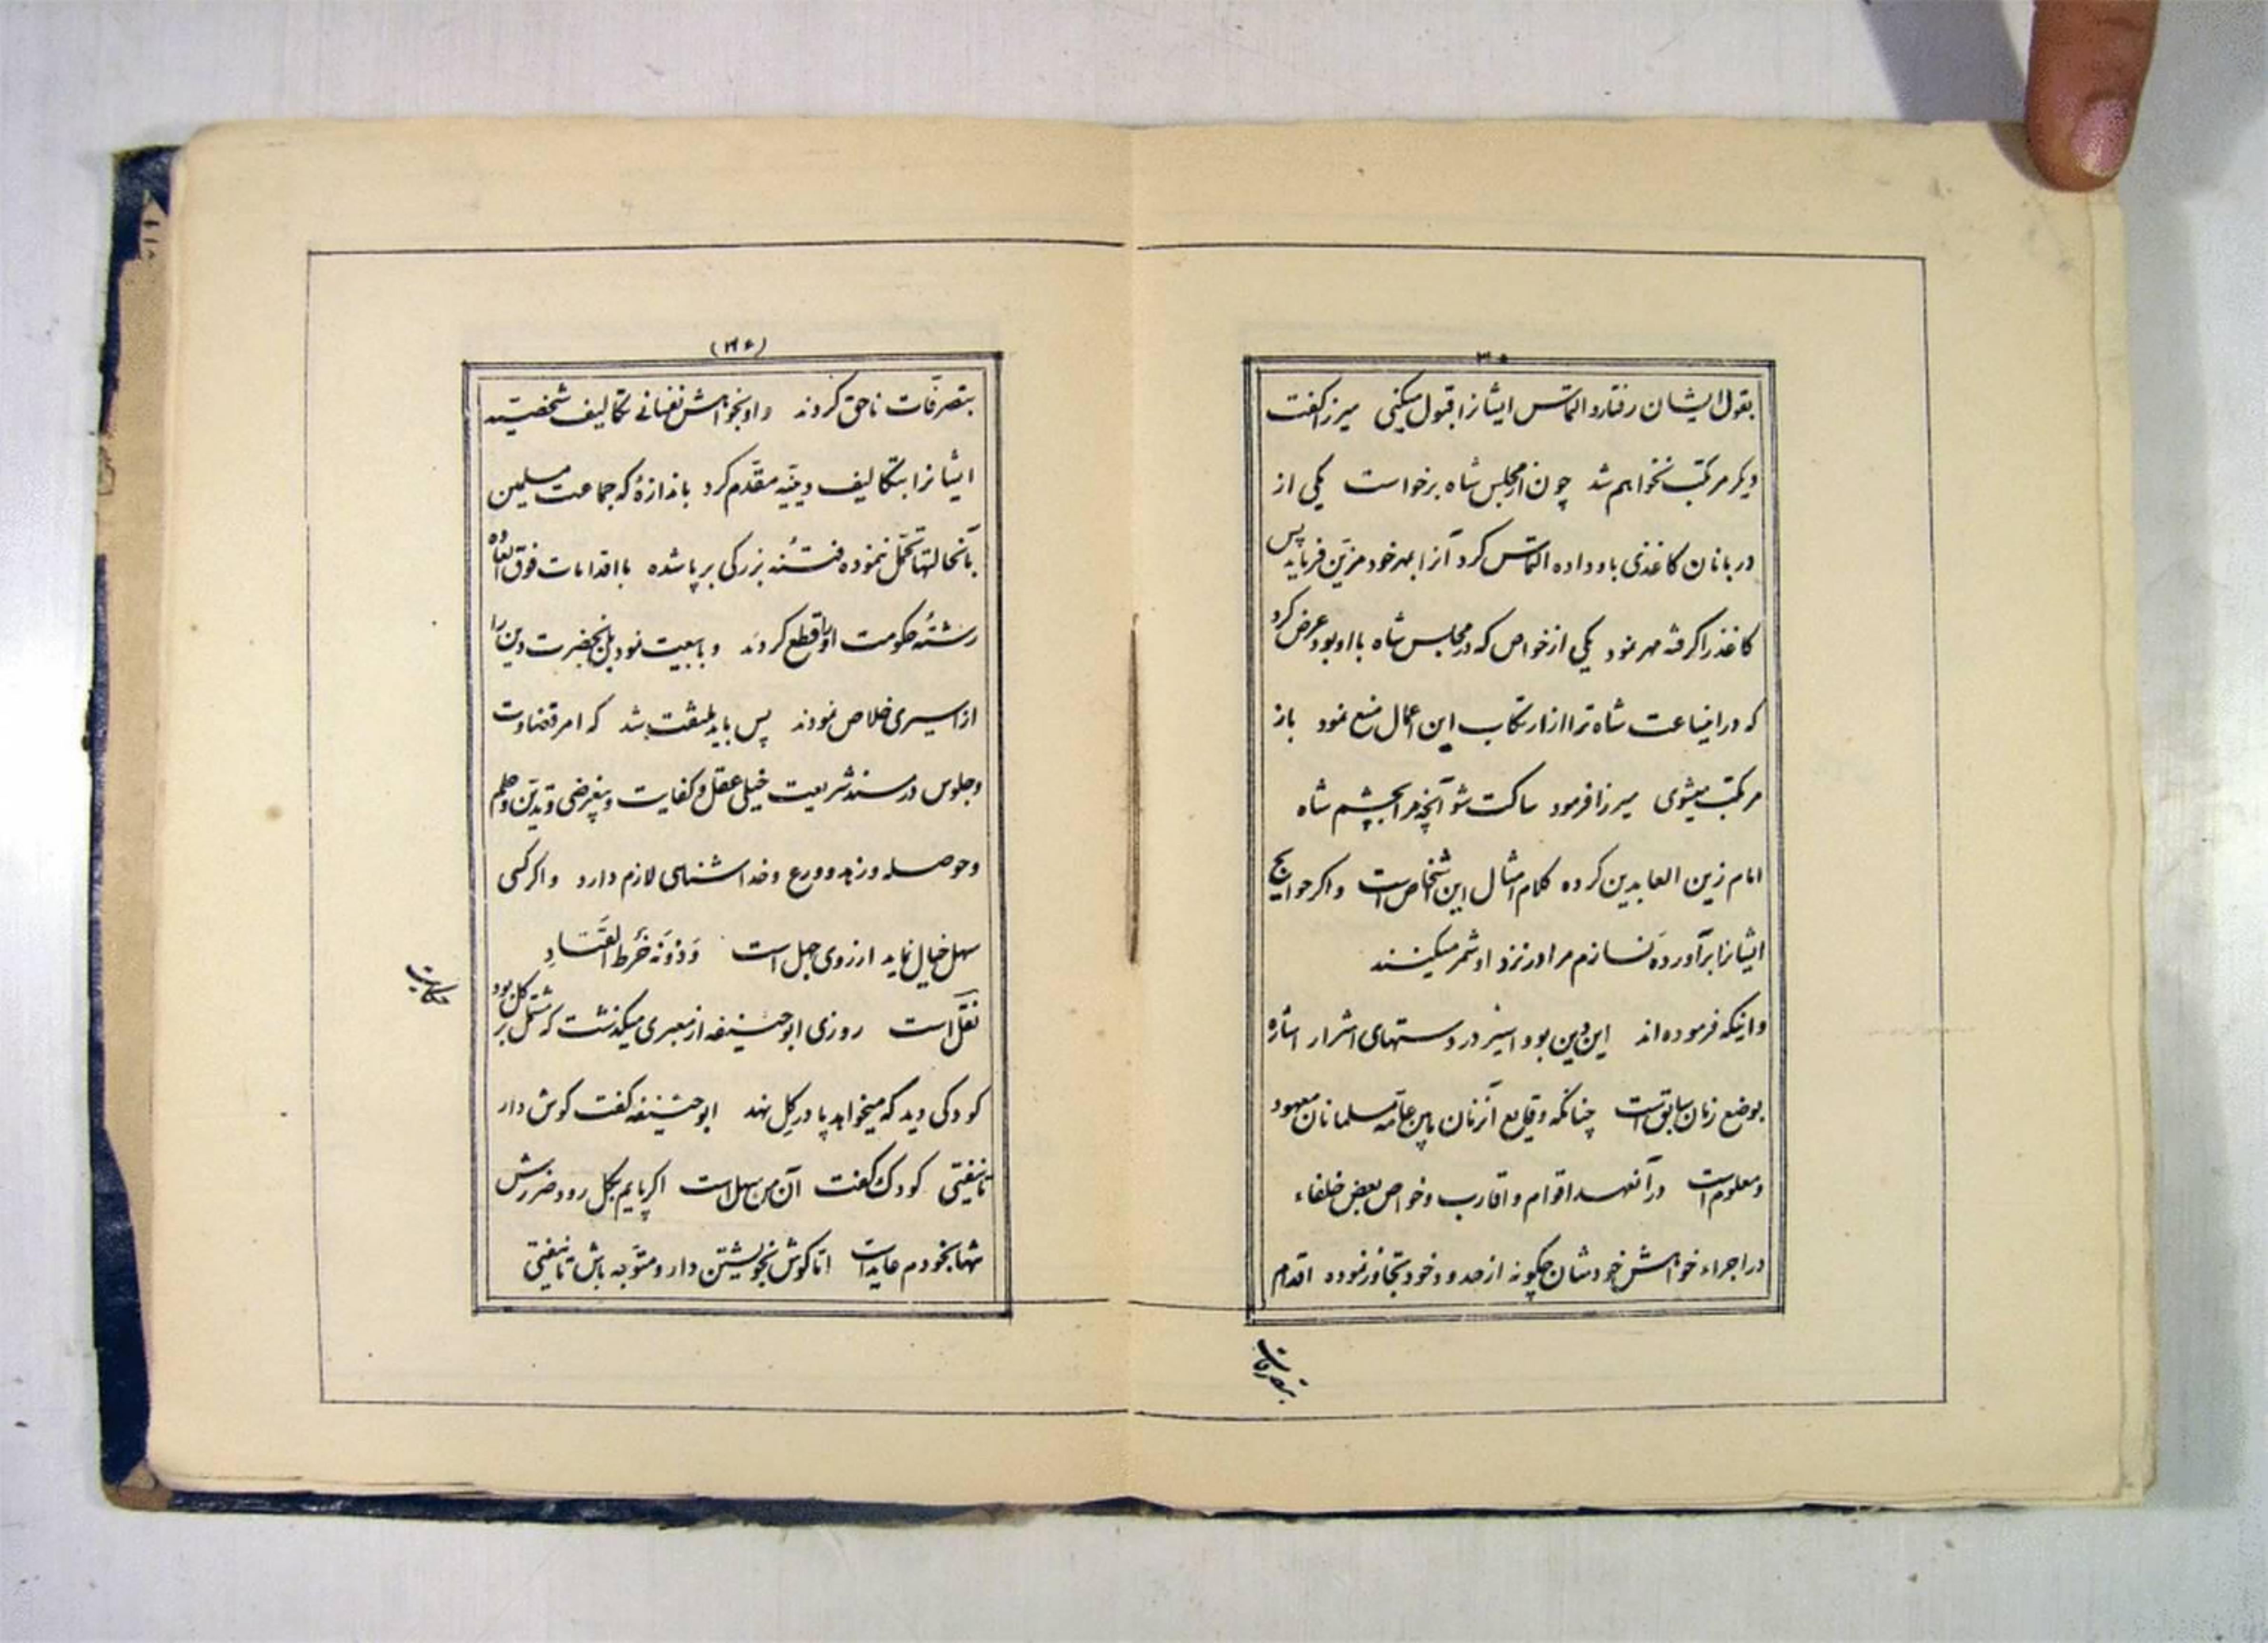 ۳۵
بقول ایشان رفتار و التماس ایشانرا قبول میکنی میرزا گفت
دیگر مرتکب نخواهم شد چون از مجلس شاه برخواست یکی از
دربانان کاغذی باو داده التماس کرد آنرا بمهر خود مزین فرماید پس
کاغذ را گرفته مهر نمود یکی از خواص که در مجلس شاه با او بود عرض کرد
که در اینساعت شاه ترا از ارتکاب این اعمال منع نمود باز
مرتکب میشوی میرزا فرمود ساکت شو آنچه مرا بچشم شاه
امام زین العابدین کرده کلام امثال این اشخاص است و اگر حوایج
ایشانرا برآورده نسازم مرا در نزد او شمر میکنند
و اینکه فرموده‌اند این دین بود اسیر در دستهای اشرار اشاره
بوضع زمان سابق است چنانکه وقایع آنزمان مابین عامّه مسلمانان معهود
و معلوم است در آنعهد اقوام و اقارب و خواص بعض خلفاء
در اجراء خواهش خودشان چگونه از حدود خود تجاوز نموده اقدام
بتصرفات
(۳۶)
بتصرّفات ناحق کردند و او بخواهش نفسانی تکالیف شخصیّه
ایشانرا بتکالیف دینیّه مقدّم کرد باندازهٔ که جماعت مسلمین
بآنحالتها تحمّل ننموده فتنهٔ بزرگی برپا شده با اقدامات فوق العاده
رشتهٔ حکومت او را قطع کردند و با بیعت نمودن بآنحضرت دین را
از اسیری خلاص نمودند پس باید ملتفت شد که امر قضاوت
و جلوس در مسند شریعت خیلی عقل و کفایت و بیغرضی و تدیّن و حلم
و حوصله و زهد و ورع و خداشناسی لازم دارد و اگر کسی
سهل خیال نماید از روی جهل است وَ دُونَهُ خَرطُ القَتَادِ
نقل است روزی ابوحنیفه از معبری میگذشت که مشتمل بر گل بود
حکایت
کودکی دید که میخواهد پا در گل نهد ابوحنیفه گفت گوش دار
تا نیفتی کودک گفت آن من سهل است اگر پایم بگل رود ضررش
تنها بخودم عاید است اما گوش بخویشتن دار و متوّجه باش تا نیفتی